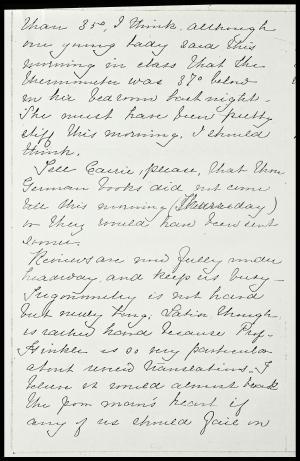 than 35°, I think, although
one young lady said this
morning in class that the
thermometer was 37° below
in her bedroom last night.
She must have been pretty
stiff this morning, I should
think.
Tell Carrie, please, that those
German books did not come
till this morning (Thursday)
or they would have been sent
sooner.
Reviews are now fully under
headway, and keep us busy —
Trigonometry is not hard
but nearly long; Latin though
is rather hard because Prof.
Hinkle is so very particular
about review translations. I
believe it would almost break
the poor man's heart if
any of us should fail in